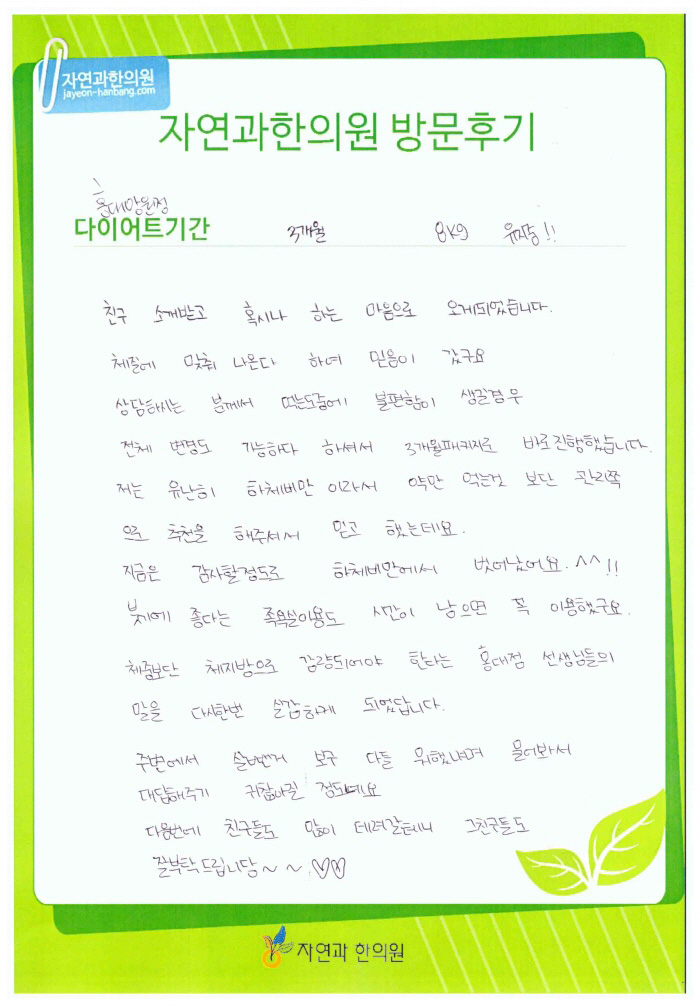 자연과한의원
jayeon-hanbang.com
자연과한의원 방문후기
홍대망원점
다이어트기간 3개월 8kg 유지중!!
친구 소개받고 혹시나 하는 마음으로 오게되었습니다.
체질에 맞춰 나온다 하여 믿음이 갔구요
상담하시는 분께서 먹는도중에 불편함이 생길경우
전체 변경도 가능하다 하셔서 3개월패키지로 바로진행했습니다.
저는 유난히 하체비만 이라서 약만 먹는것 보단 관리쪽
으로 추천을 해주셔서 믿고 했는데요.
지금은 감사할정도로 하체비만에서 벗어났어요. ^^!!
붓기에 좋다는 족욕실이용도 시간이 남으면 꼭 이용했구요.
체중보단 체지방으로 감량되어야 한다는 홍대점 선생님들의
말을 다시한번 실감하게 되었답니다.
주변에서 살뺀거 보구 다들 뭐했냐며 물어봐서
대답해주기 귀찮아질 정도네요
다음번에 친구들도 많이 데려갈테니 그친구들도
잘부탁드립니당~~.♡♡
자연과 한의원